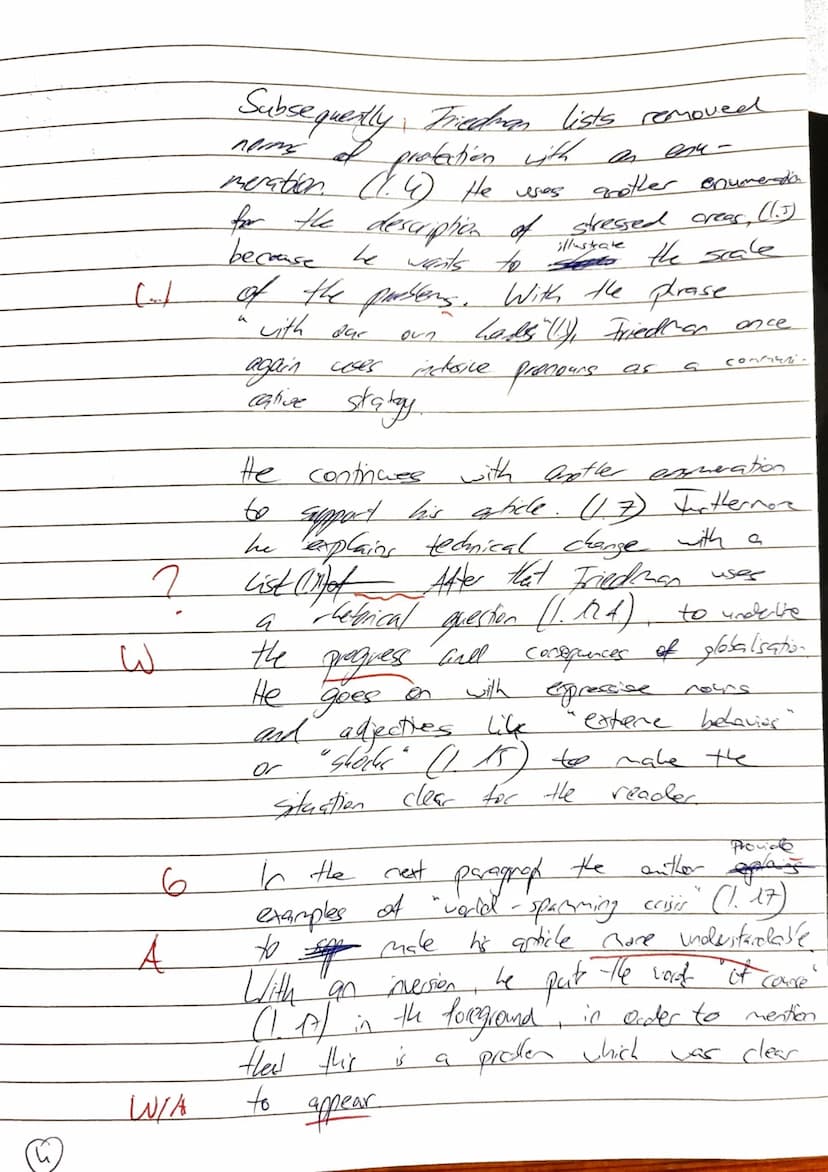 Subsequently, Friedman lists removed
norms of protection with an enu-
meration. (l. 4) He uses another enumeration
for the description of stressed areas, (l.5)
illustrate
because he wants to the scale
(...) of the problems. With the phrase
"with our own hands" (l.), Friedman once
again uses inclusive pronouns as a communi-
cative strategy.
He continues with another enumeration
to support his article. (l. 7) Furthermore
he explains technical change with a
? list (l.11) of ___ After that Friedman uses
a rhetorical question (l. 12 f), to underline
W the progress and consequences of globalisation.
He goes on with expressive nouns
and adjectives like "extreme behavior"
or "shocks" (l. 15) to make the
situation clear for the reader.
Provide
G In the next paragraph the author explains
examples of "world-spanning crisis" (l. 17)
A to make his article more understandable.
With an inversion, he put the word "of course"
(l. 17) in the foreground, in order to mention
that this is a problem which was clear
W/A to appear.
4